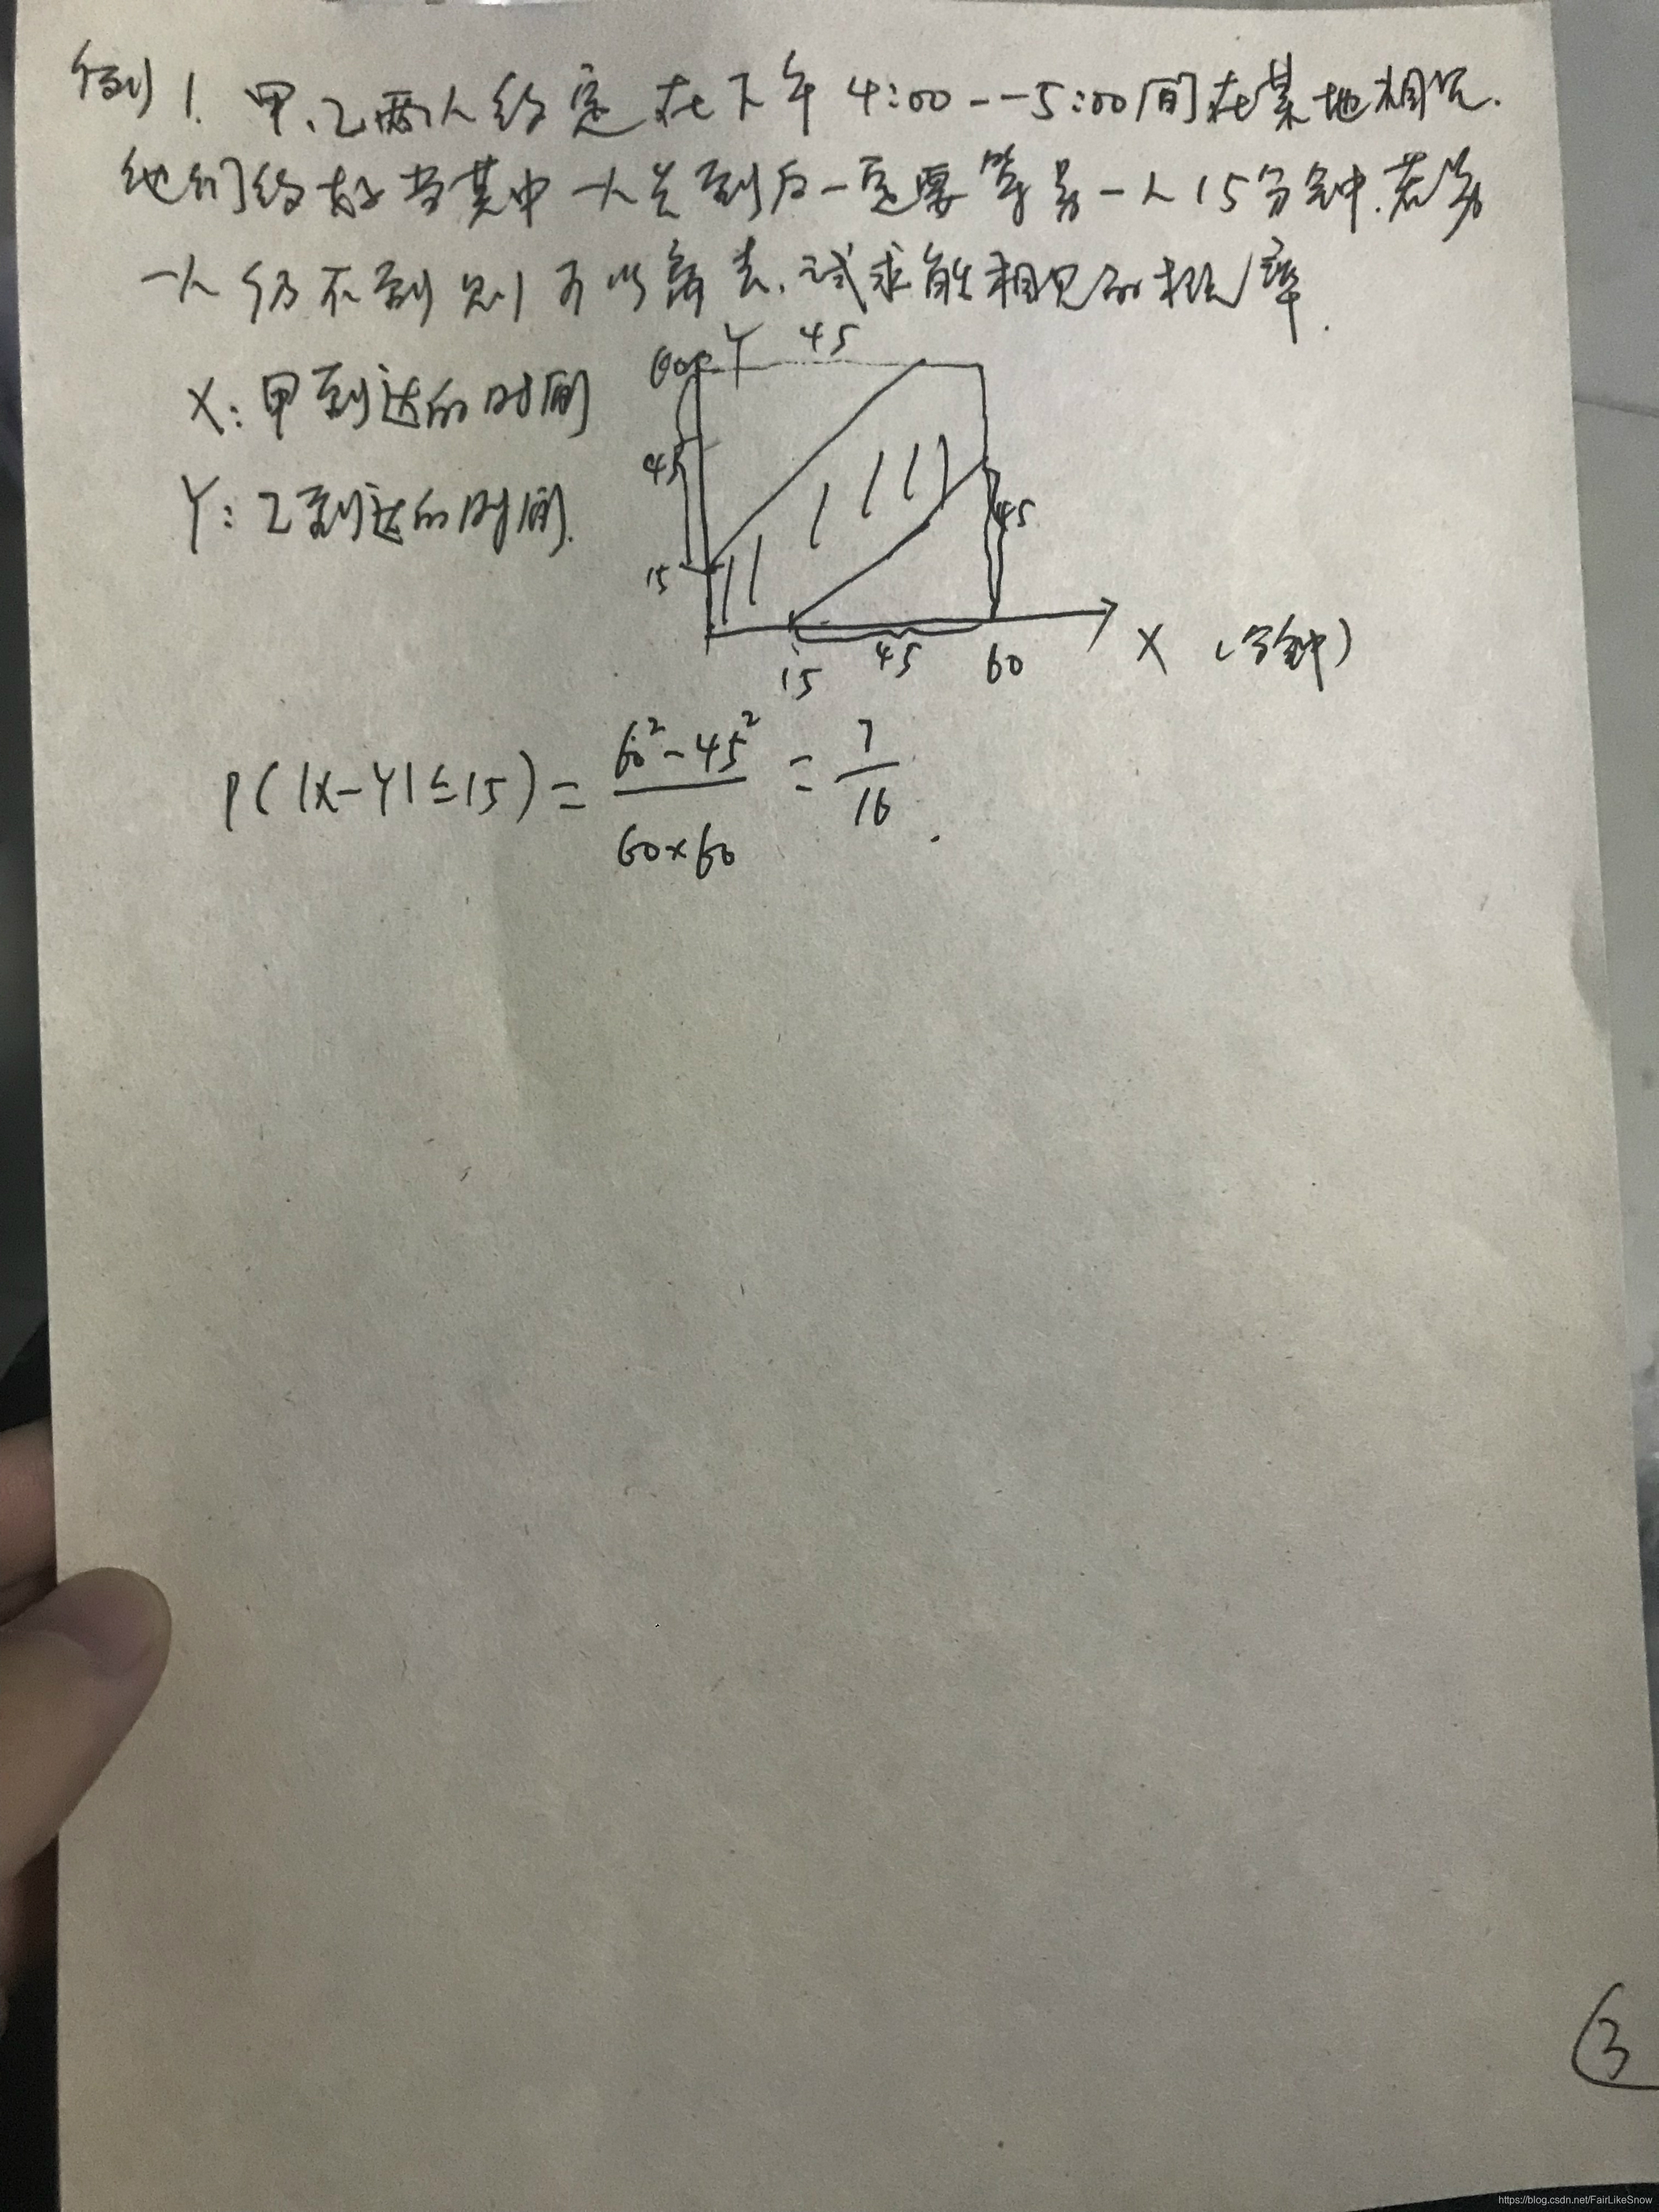 例1. 甲、乙两人约定在下午4:00--5:00间在某地相见.
他们约好当其中一人先到后一定要等另一人15分钟.若另
一人仍不到则可以离去,试求能相见的概率.
X:甲到达的时间
Y:乙到达的时间.
60 Y 45
45
45
15
15 45 60 X (分钟)
P(|X-Y|≤15)= 60²-45² / 60×60 = 7/16.
3
https://blog.csdn.net/FairLikeSnow